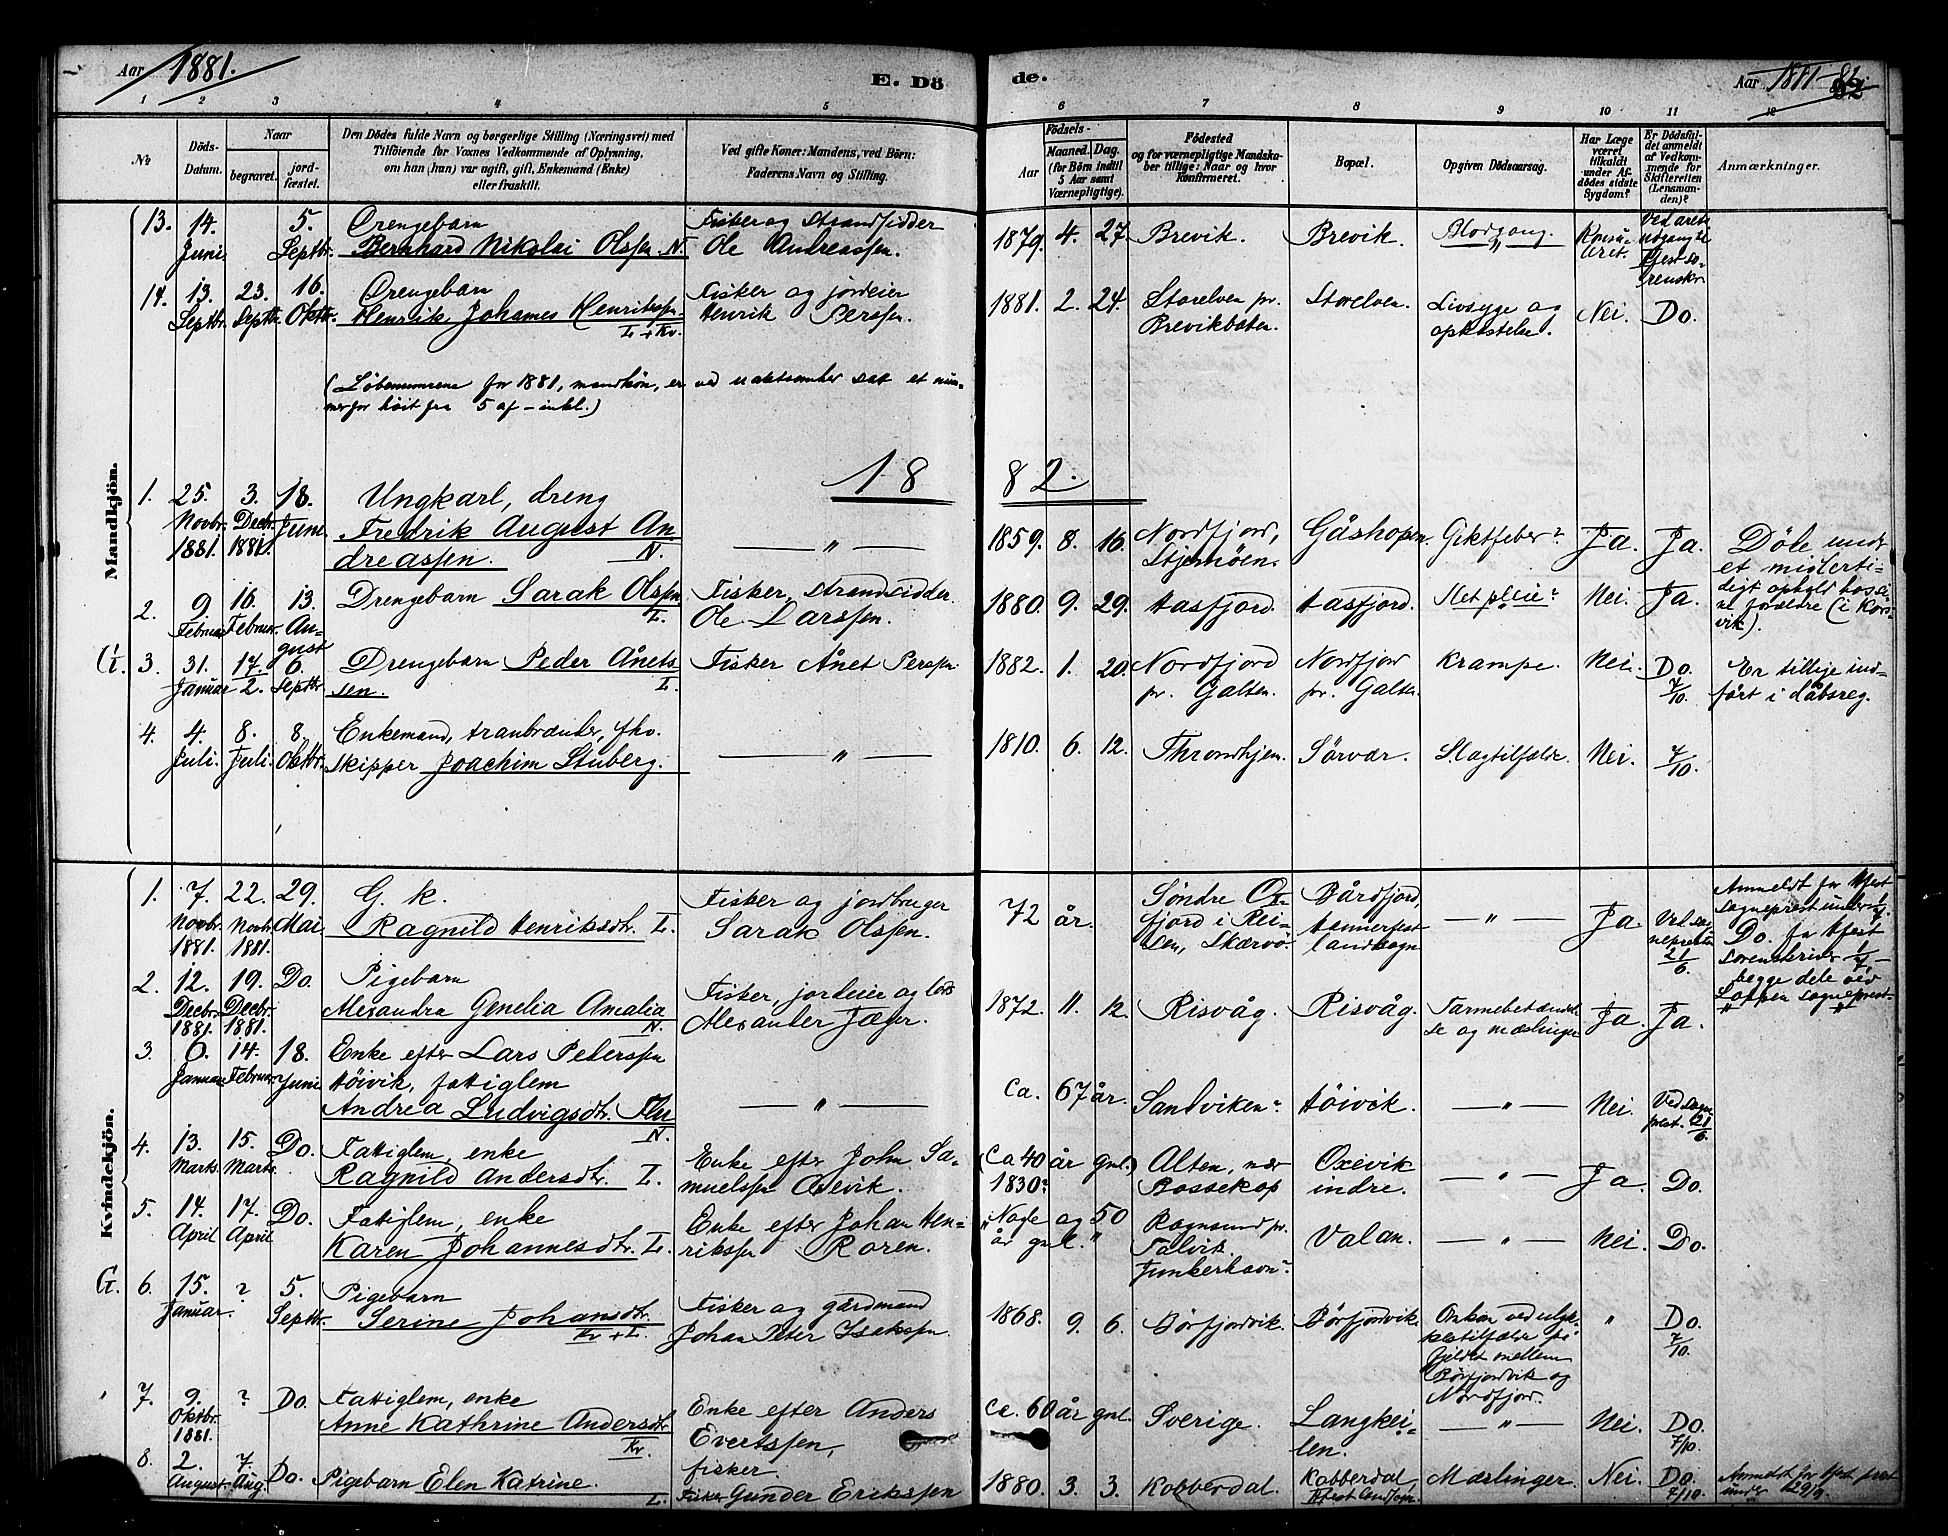 Aar 1881.
E. Dö
de.
Aar 1881-82.
1 2 3 4 5 6 7 8 9 10 11 12
№
Döds-
Datum.
Naar
begravet.
jord-
fæstet.
Den Dödes fulde Navn og borgerlige Stilling (Næringsvei) med
Tilföiende for Voxnes Vedkommende af Oplysning,
om han (hun) var ugift, gift, Enkemand (Enke)
eller fraskilt.
Ved gifte Koner: Mandens, ved Börn:
Faderens Navn og Stilling.
Födsels-
Aar
Maaned. Dag.
(for Börn indtil
5 Aar samt
Værnepligtige).
Födested
og for værnepligtige Mandska-
ber tillige: Naar og hvor
konfirmeret.
Bopæl.
Opgiven Dödsaarsag.
Har Læge
været
tilkaldt
under Af-
dödes sidste
Sygdom?
Er Dödsfal-
det anmeldt
af Vedkom-
mende for
Skifteretten
(Lensman-
den)?
Anmærkninger.
Mandkjön.
13. 14. Juni 5. Septbr.
Drengebarn
Bernhard Nikolai Olssen. N.
Fisker og Strandsidder
Ole Andreassen.
1879. 4. 27. Brevik. Brevik. Blodgang.
14. 13. Septbr. 23. Septbr. 16. Oktbr.
Drengebarn
Henrik Johannes Henrikssen
L + Kv.
Fisker og jordeier
Henrik Perssen.
1881. 2. 24. Storelven pr. Brevikboten. Storelven. Livsyge og opkastelse. Nei. Do.
(Löbenumrene for 1881, mandkön, er ved uaktsomhed sat et num-
mer for höit fra 5 af - inkl.)
1882.
1. 25. Novbr. 1881. 3. Decbr. 1881. 18. Juni
Ungkarl, dreng
Fredrik August An-
dreassen. N.
— " —
1859. 8. 16. Nordfjord, Stjernöen. Gåshopen. Giktfeber? Ja. Ja.
Döde under
et midlerti-
digt ophold hos si-
ne forældre (i Kors-
vik).
2. 9 Februar 16. Februar. 13. August
Drengebarn Sarak Olssen
L.
Fisker, strandsidder
Ole Larssen.
1880. 9. 29. Aasfjord. Aasfjord. Nei. Ja.
G. 3. 31. Januar 17/2. 6. Septbr.
Drengebarn Peder Ånets-
sen. L.
Fisker Ånet Perssen
1882. 1. 20. Nordfjord pr. Galten. Nordfjor pr. Galten Krampe. Nei. Do. 7/10.
Er tillige ind-
fört i dåbsreg.
4. 4. Juli. 8. Juli. 8. Oktbr.
Enkemand, tranbrænder, fhv.
skipper Joachim Stuberg.
— " —
1810. 6. 12. Throndhjem. Sörvær. Slagtilfælde. Nei. 7/10.
Kvindekjön.
1. 7. Novbr. 1881. 22. Novb. 1881. 29. Mai
G. k.
Ragnild Henriksdtr. L.
Fisker og jordbruger
Sarak Olssen.
72 år. Söndre Ox-
fjord i Rei-
sen, Skærvö
Bårdfjord,
Hammerfest
landsogn
— " — Ja. Ved sog-
nepresten
21/6.
Anmeldt for Hfest
sogneprest under 1/7.
Do. for Hfest
sorenskriver 1/7 -
begge dele ved
Loppen sogneprest-
2. 12. Decbr. 1881. 19. Decbr. 1881. Do.
Pigebarn
Alexandra Genelia Amalia
N.
Fisker, jordeier og lods
Alexander Jæger.
1872. 11. 12. Risvåg. Risvåg. Tarmebetændel-
se og mæslinger Ja. Ja.
3. 6. Januar 14. Februar. 18. Juni
Enke efter Lars Peterssen
Höivik, fattiglem
Andrea Ludvigsdtr.
N.
— " —
Ca. 67 år. Sandviken? Höivik. — " — Nei. Ved sogne
prest. 21/6.
4. 13. Marts 15. Marts. Do.
Fattiglem, enke
Ragnild Andersdtr. L.
Enke efter John Sa-
muelssen Oxevik.
(Ca 40 år gml.)
1830? Alten, nær
Bossekop
Oxevik
indre.
— " — Ja. Do.
5. 14. April 17. April Do.
Fattiglem, enke
Karen Johannesdtr. L.
Enke efter Johan Hen-
rikssen Roren.
"Nogle og 50
år gml." Rognsund pr.
Talvik.
Junkerhavn?
Valan. — " — Nei. Do.
G. 6. 15. Januar. ? 5. Septbr.
Pigebarn
Serine Johansdtr.
Kv + L.
Fisker og gårdmand
Johan Peter Isakssen.
1868. 9. 6. Börfjordvik. Börfjordvik. Omkom ved ulyk-
kestilfælde på
fjeldet mellem
Börfjordvik og
Nordfjord.
" Do. 7/10.
7. 9. Oktbr. 1881. ? Do.
Fattiglem, enke
Anne Kathrine Andersdtr
Kv
Enke efter Anders
Evertssen,
fisker.
Ca. 60 år gml. Sverige. Langkei-
len. — " — Nei. Do. 7/10.
8. 2. August. 7. Aug. Do.
Pigebarn Elen Katrine.
L.
Fisker Gunder Erikssen
1880. 3. 3. Kobberdal. Kobberdal, Hfest landsogn. Mæslinger. Nei. Do. 7/10.
Anmeldt for Hfest prest
under 29/9.